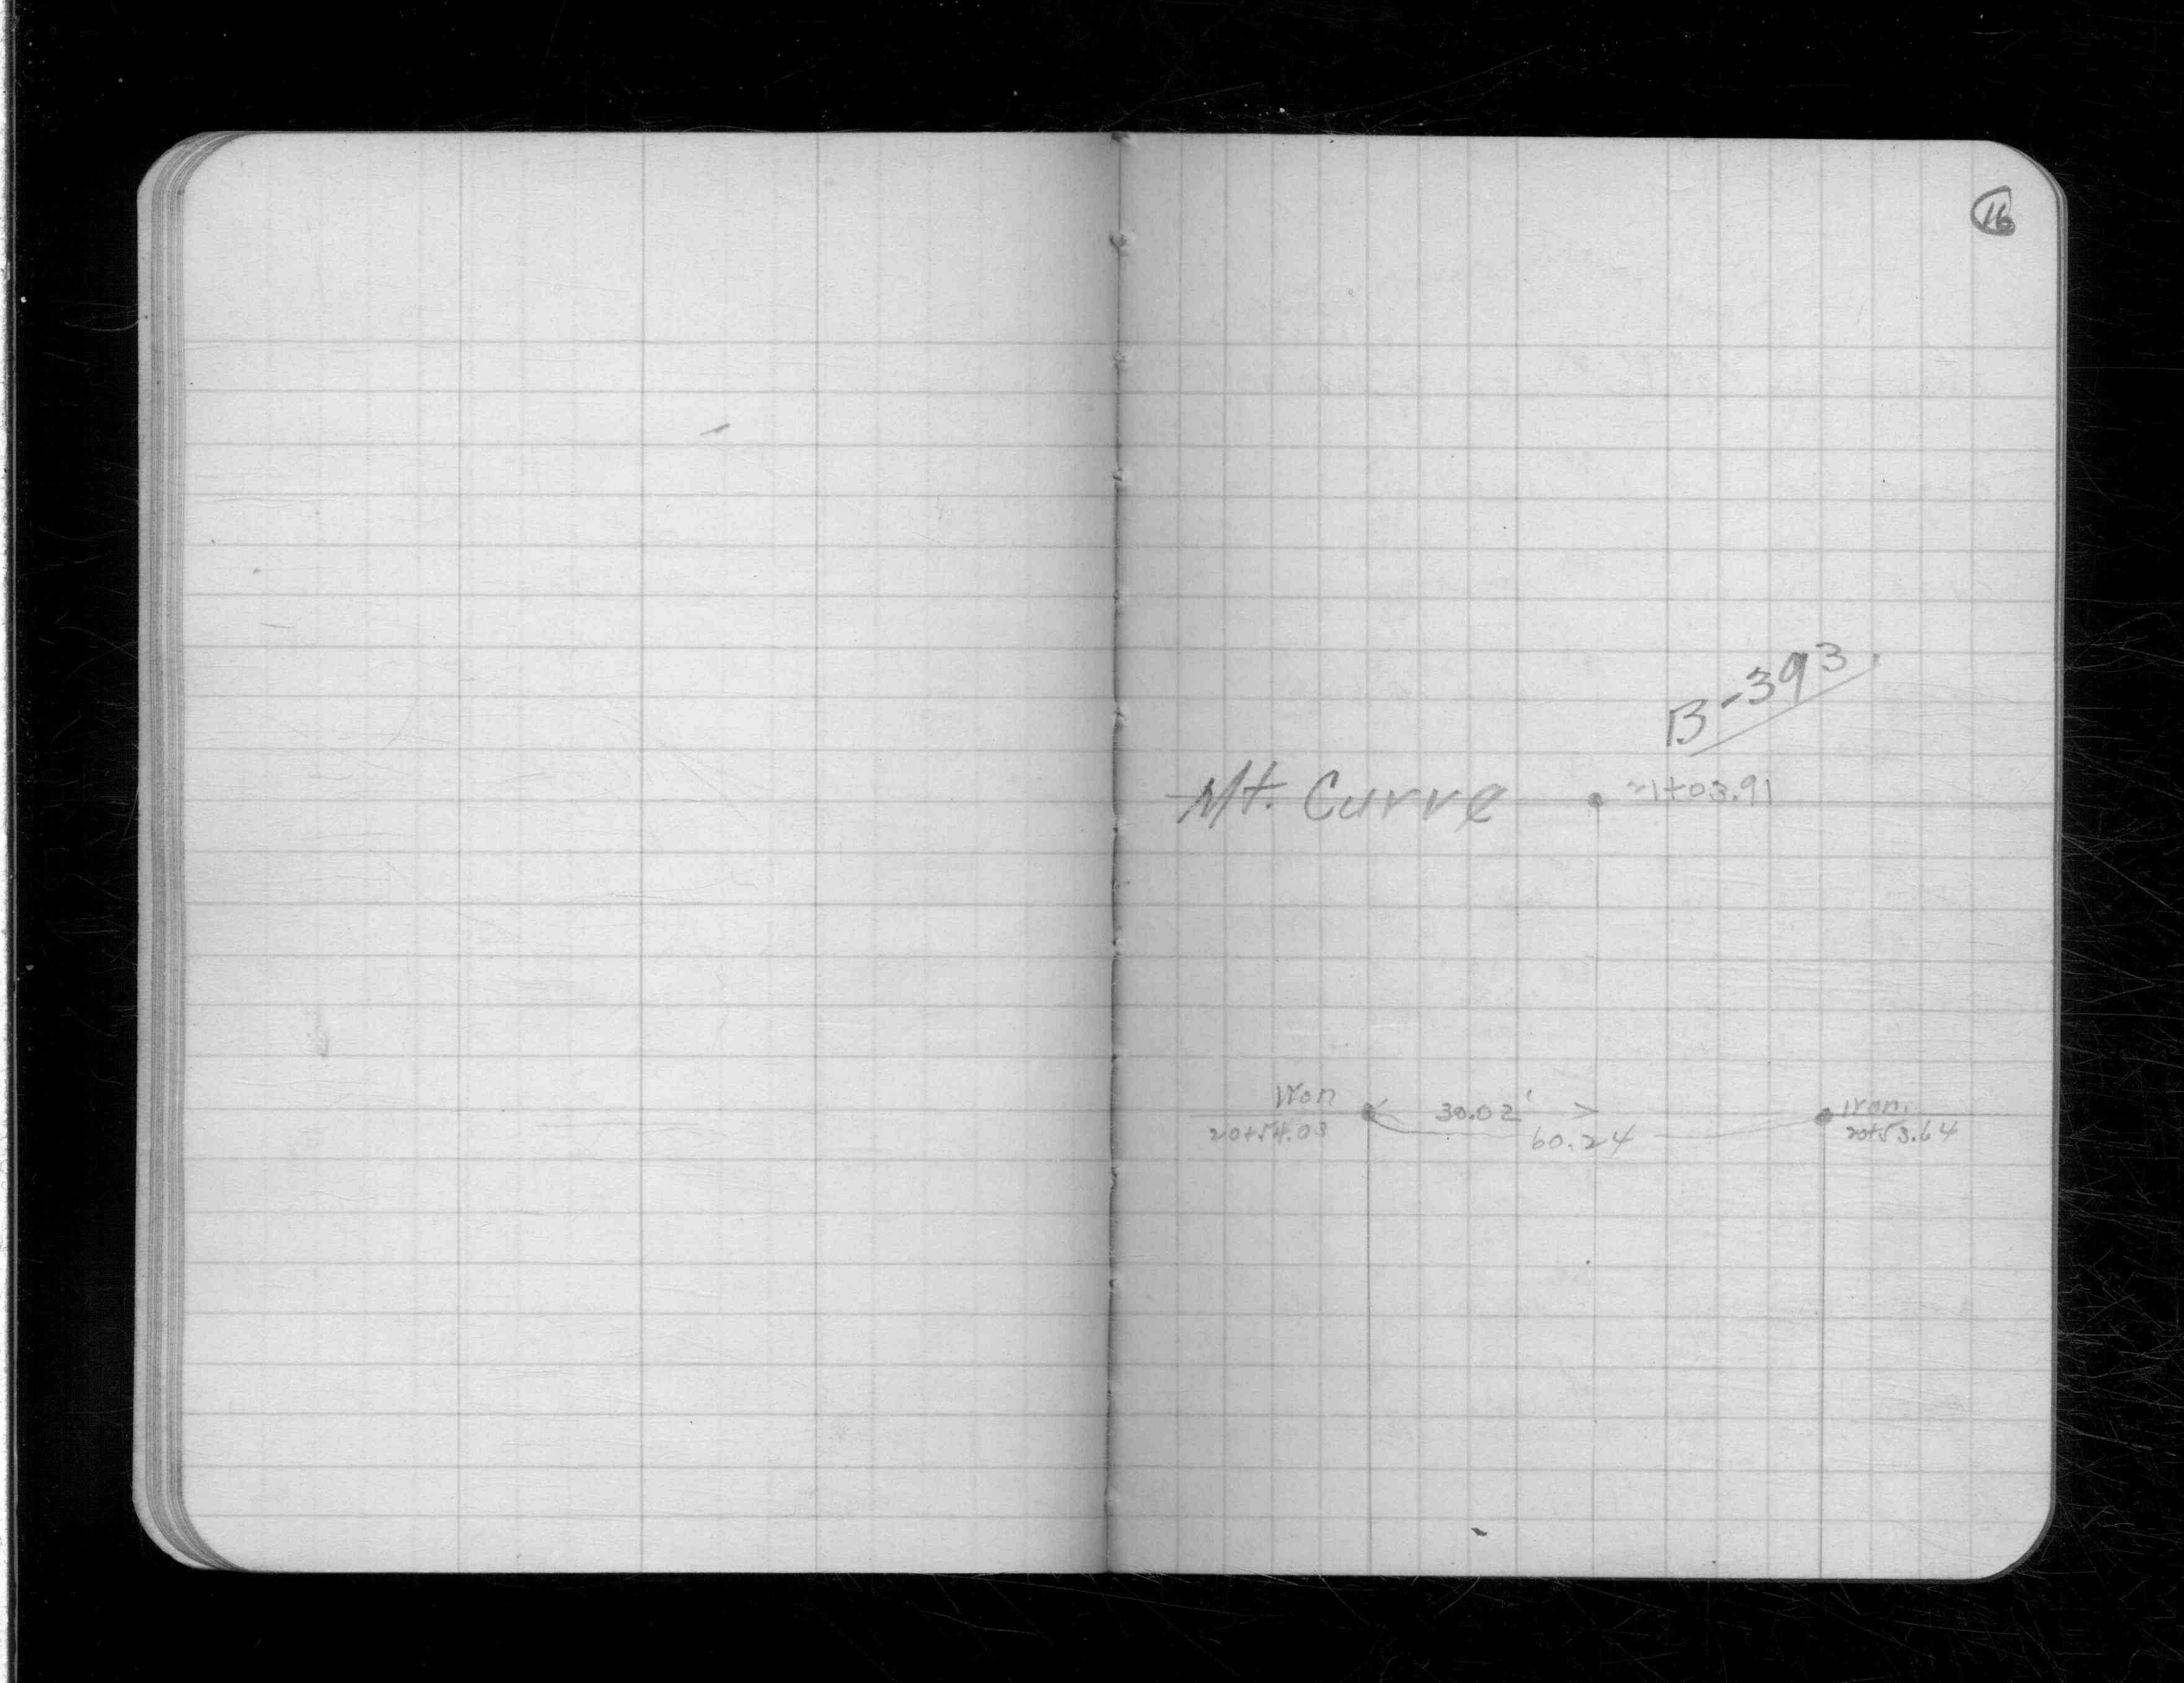 16
B-393
Mt. Curve 21+03.91
Iron 30.02' Iron.
20+54.03 60.24 20+53.64